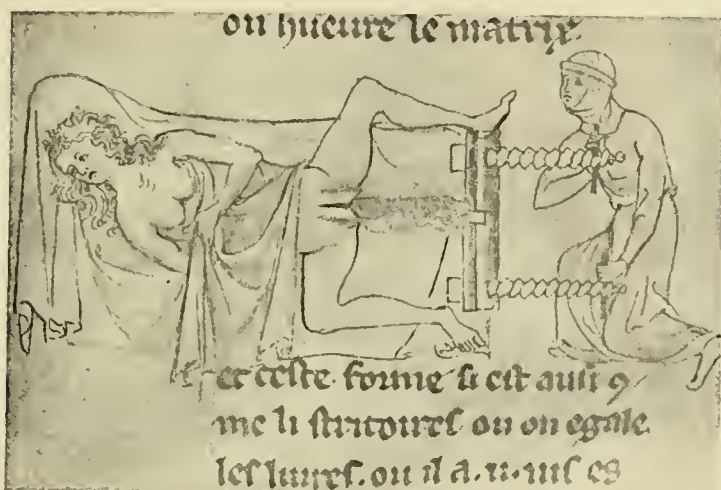 on hueure le matrix.
et ceste forme si est ausi ꝯ
me li stritoires ou on egale
les liures. ou il a .ii. uis es